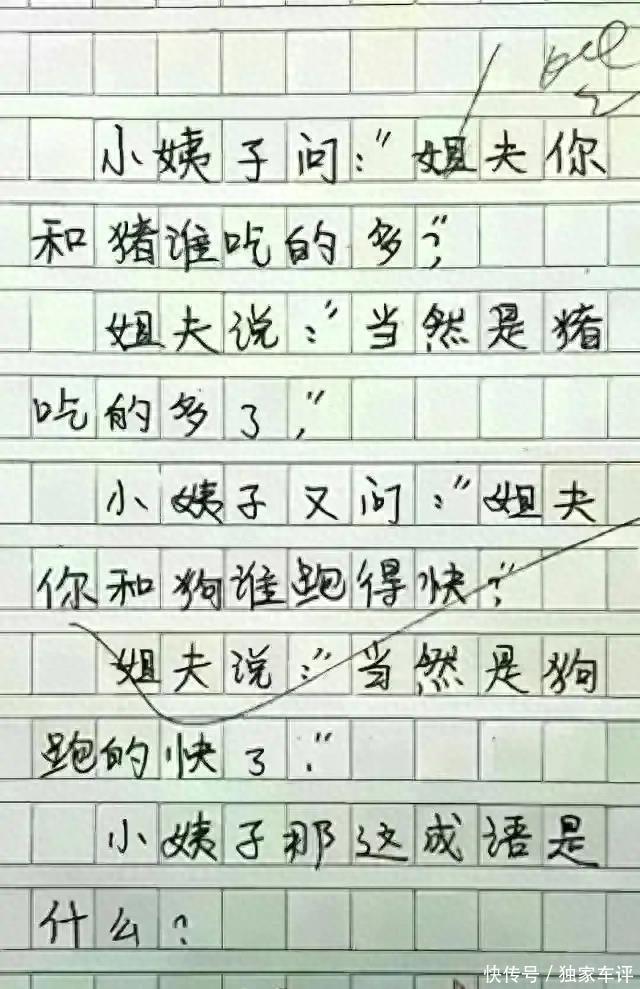 小姨子问:"姐夫你
和猪谁吃的多?"
姐夫说:"当然是猪
吃的多了,"
小姨子又问:"姐夫
你和狗谁跑得快?"
姐夫说:"当然是狗
跑的快了."
小姨子那这成语是
什么?
快传号/独家车评